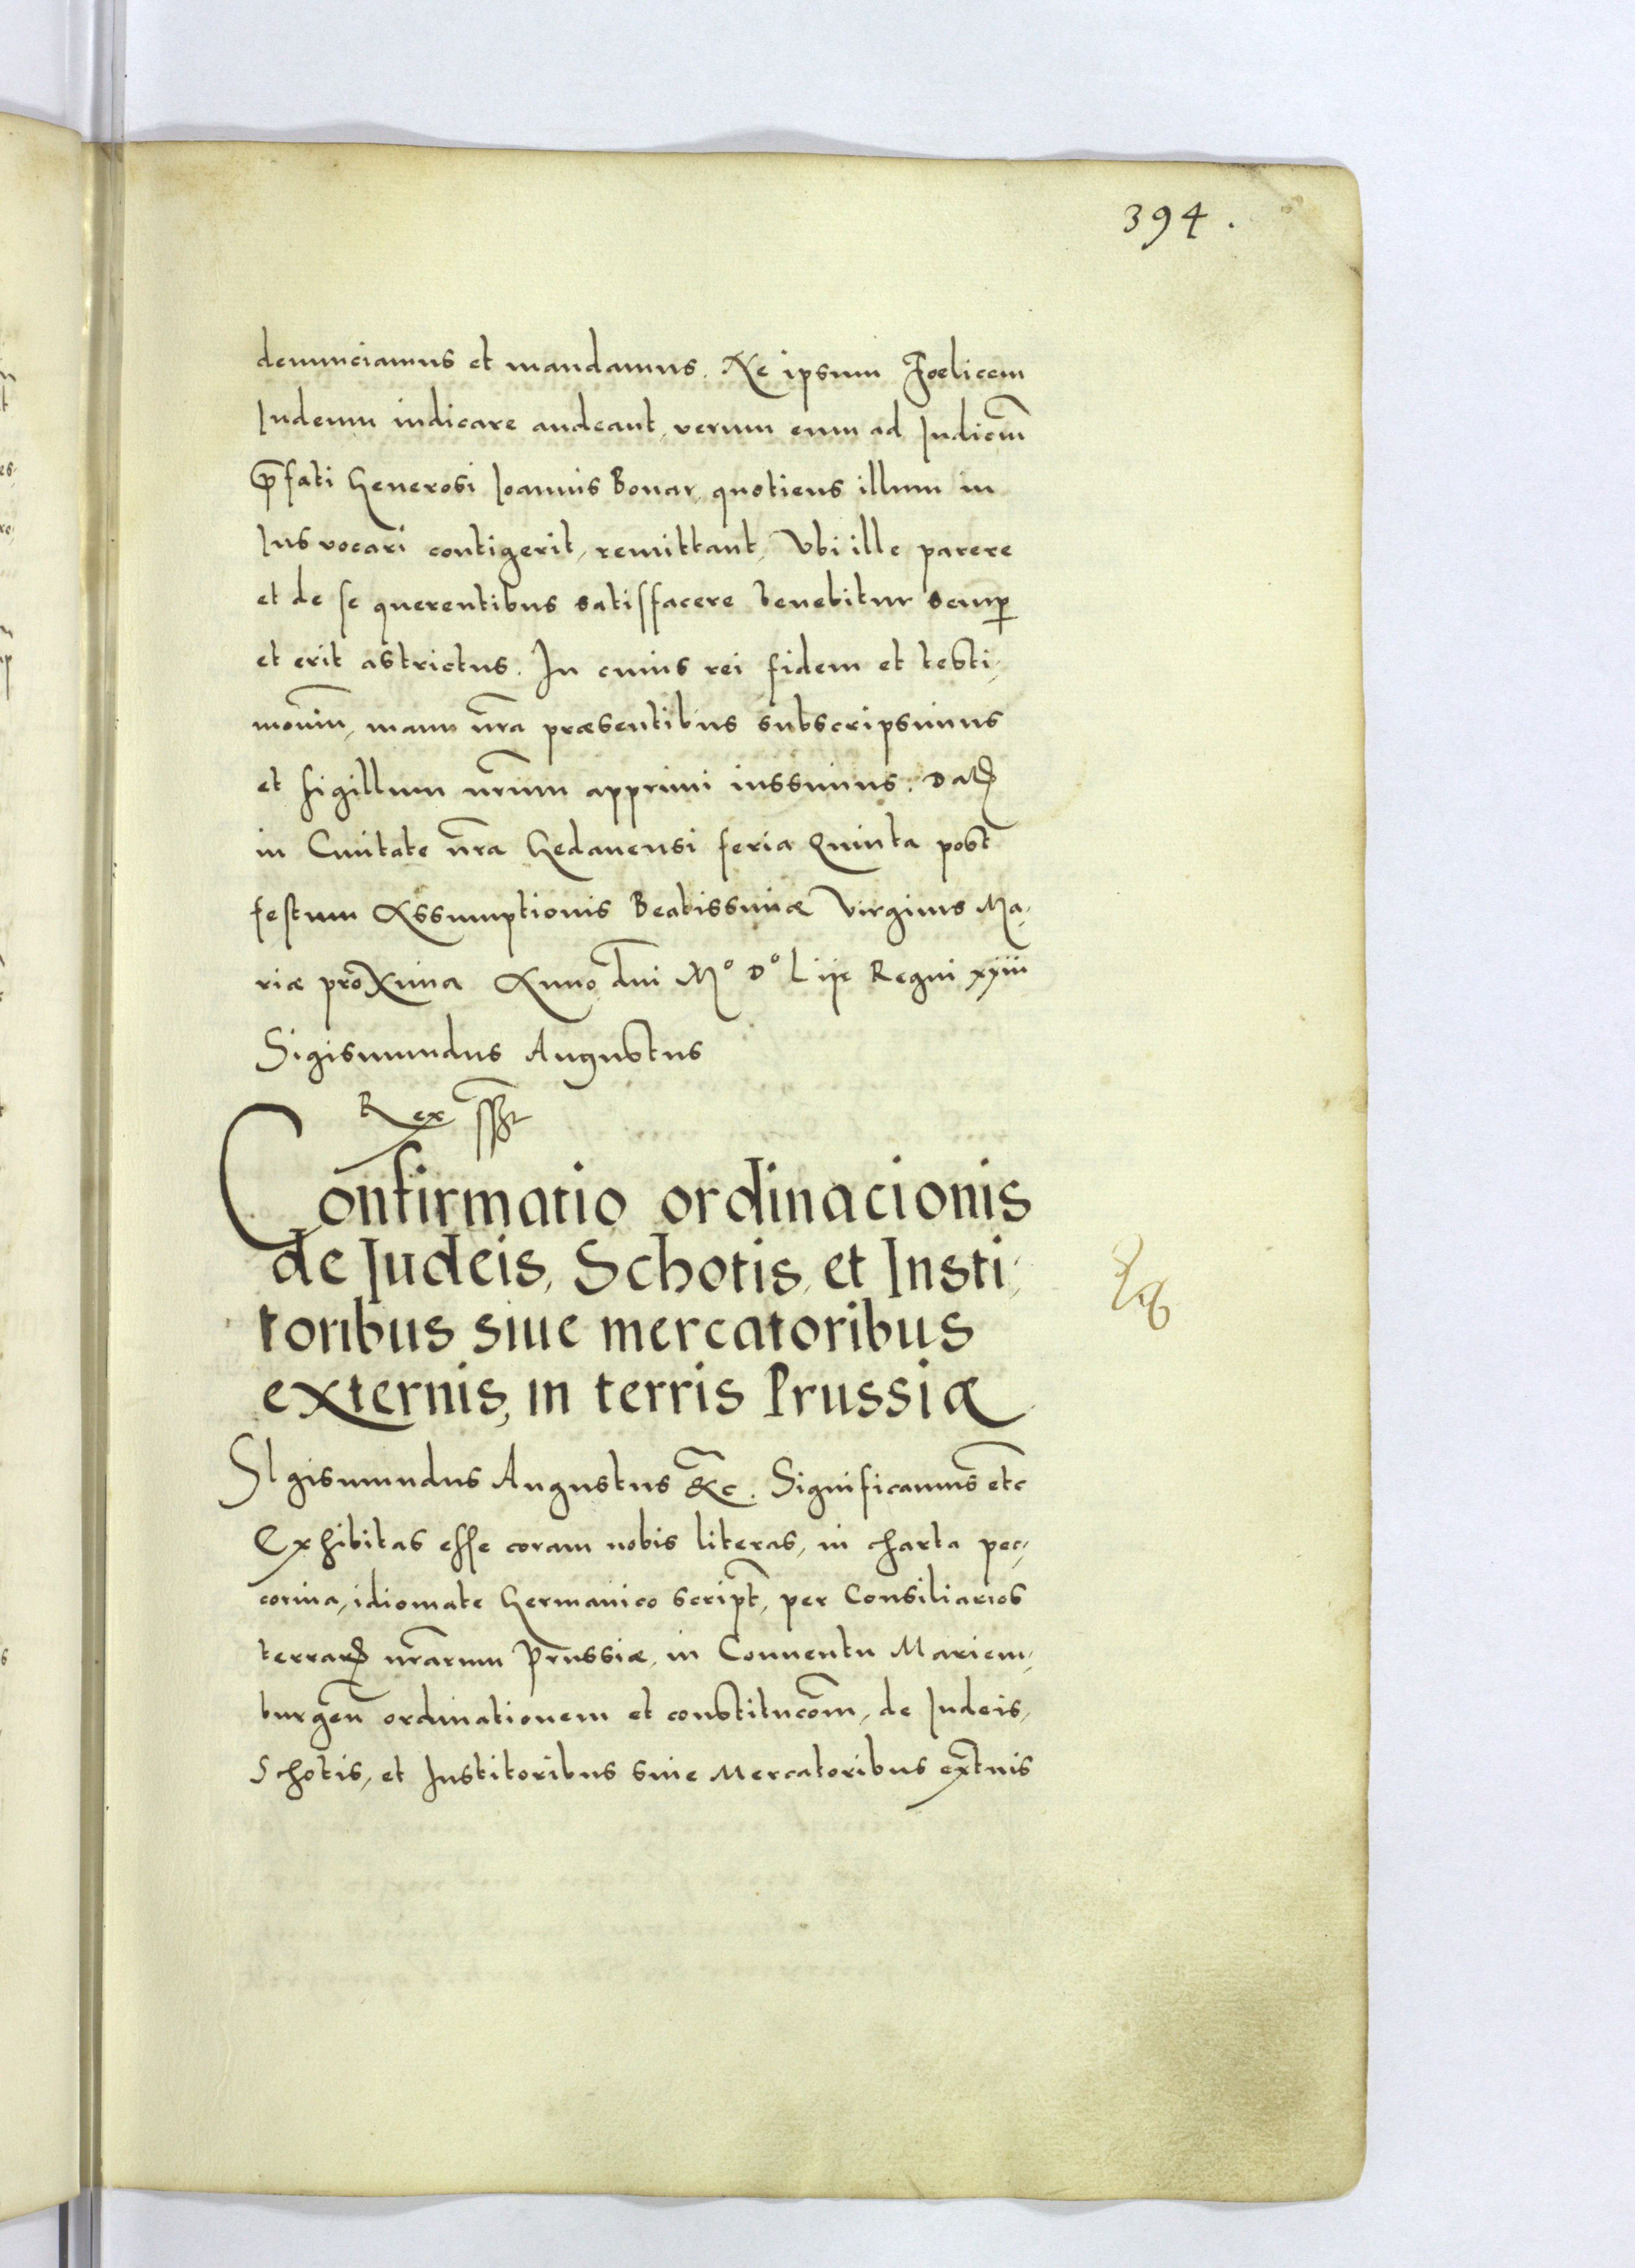 394.
denunciamus et mandamus. Ne ipsum Foelicem
Iudeum iudicare audeant, verum eum ad Iudiciu͞m
p̄fati Generosi Ioannis Bonar, quotiens illum in
Ius vocari contigerit, remittant, Vbi ille parere
et de se querentibus satisffacere tenebitur semp̱
et erit astrictus. In cuius rei fidem et testi,
moniu͞, manu nr̄a præsentibus subscripsimus
et sigillum nr̄um apprimi iussimus. Datꝝ
in Ciuitate nr̄a Gedanensi feria Quinta post
festum Assumptionis Beatissimæ Virginis Ma,
riæ proxima Anno dn̄i Mº Dº L ije Regni xxiii
Sigismundus Augustus
Rex ss̄t
Confirmatio ordinacionis
de Iudeis, Schotis, et Insti,
toribus siue mercatoribus
externis, in terris Prussiæ
SIgismundus Augustus &c̄. Significamus etc̄
Exhibitas esse coram nobis literas, in charta pec,
corina, idiomate Germanico script̄, per Consiliarios
terrarꝝ nr̄arum Prussiæ, in Conuentu Mariem,
burgen̄ ordinationem et constituco͞m, de Iudeis,
Schotis, et Institoribus siue Mercatoribus ext̄nis